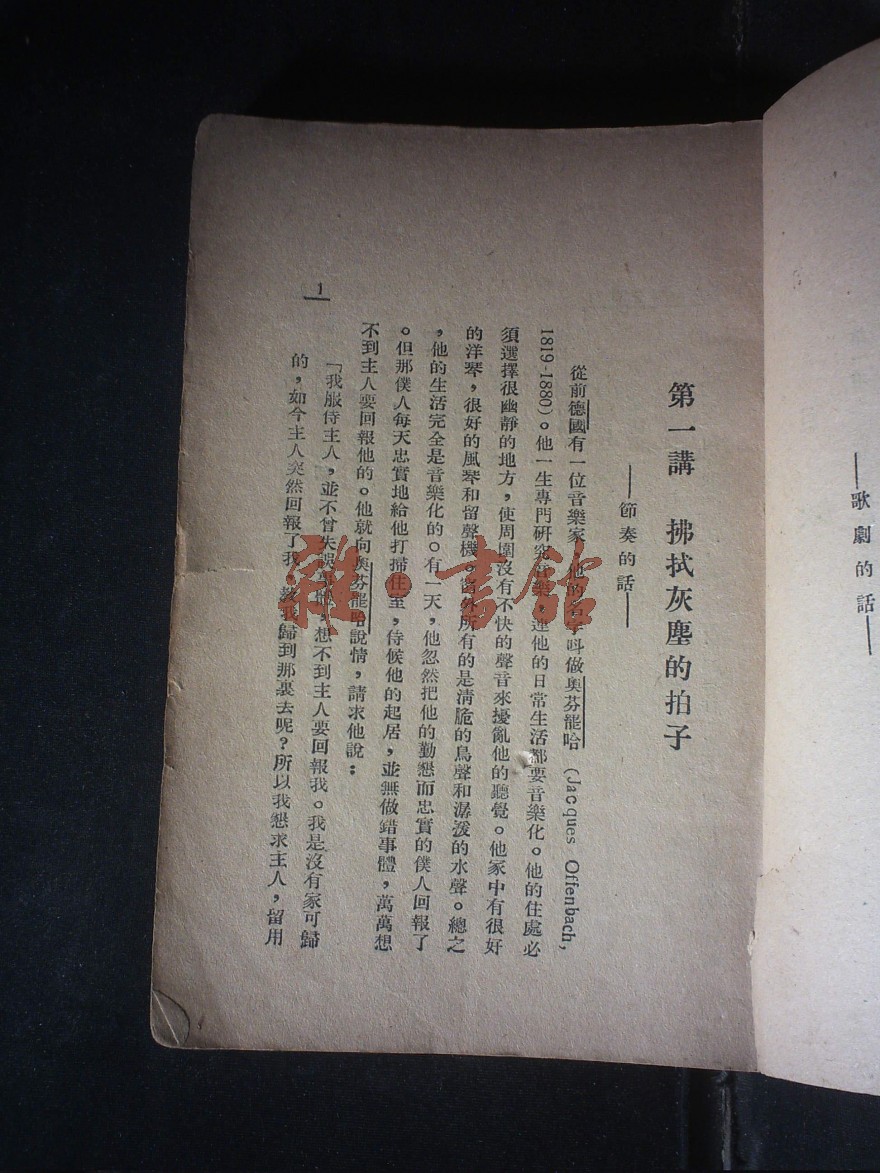 ——歌劇的話——
第一講　拂拭灰塵的拍子
——節奏的話——
從前德國有一位音樂家，他的名字叫做奧芬罷哈 (Jacques Offenbach,
1819-1880)。他一生專門研究音樂，連他的日常生活都要音樂化。他的住處必
須選擇很幽靜的地方，使周圍沒有不快的聲音來擾亂他的聽覺。他家中有很好
的洋琴，很好的風琴和留聲機。窗外所有的是清脆的鳥聲和潺湲的水聲。總之
，他的生活完全是音樂化的。有一天，他忽然把他的勤懇而忠實的僕人回報了
。但那僕人每天忠實地給他打掃住室，侍候他的起居，並無做錯事體，萬萬想
不到主人要回報他的。他就向奧芬罷哈說情，請求他說：
「我服侍主人，並不曾失誤事體，想不到主人要回報我。我是沒有家可歸
的，如今主人突然回報了我，教我歸到那裏去呢？所以我懇求主人，留用
1
雜·書館